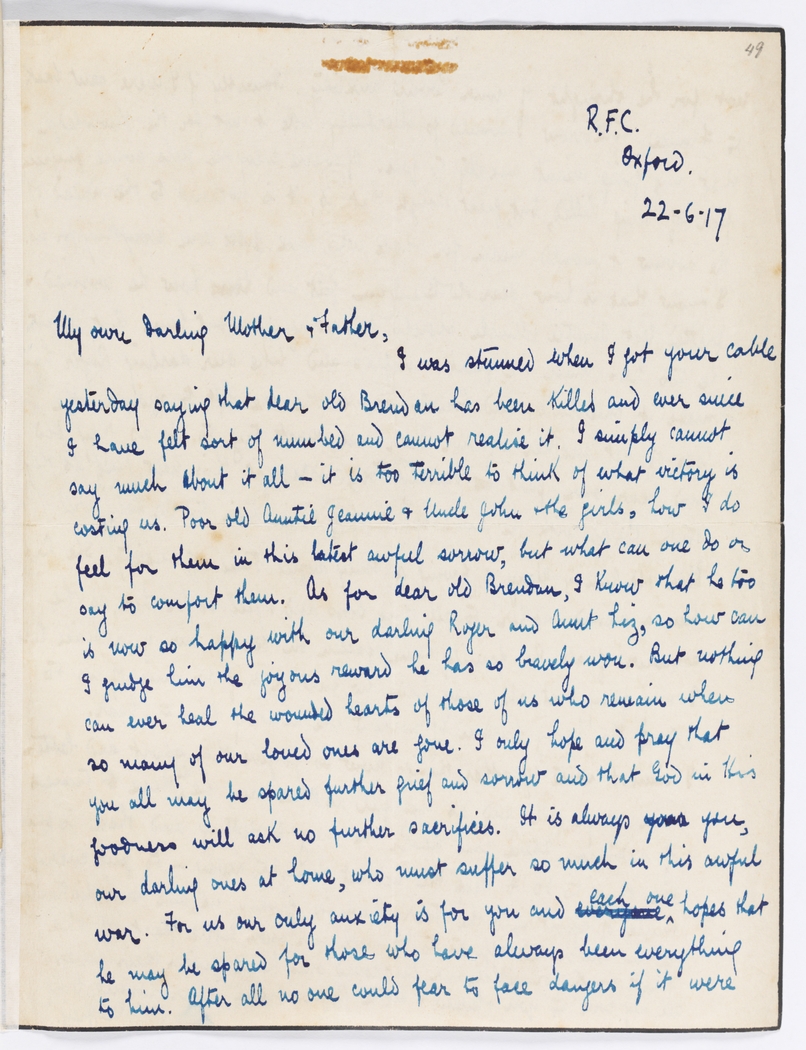 49
R.F.C.
Oxford.
22-6-17
My own Darling Mother & Father,
I was stunned when I got your cable
yesterday saying that dear old Brendan has been killed and ever since
I have felt sort of numbed and cannot realise it. I simply cannot
say much about it all – it is too terrible to think of what victory is
costing us. Poor old Auntie Jeannie & Uncle John & the girls, how I do
feel for them in this latest awful sorrow, but what can one do or
say to comfort them. As for dear old Brendan, I know that he too
is now so happy with our darling Roger and Aunt Liz, so how can
I grudge him the joyous reward he has so bravely won. But nothing
can ever heal the wounded hearts of those of us who remain when
so many of our loved ones are gone. I only hope and pray that
you all may be spared further grief and sorrow and that God in His
goodness will ask no further sacrifices. It is always you,
our darling ones at home, who must suffer so much in this awful
war. For us our only anxiety is for you and everyone each one hopes that
he may be spared for those who have always been everything
to him. After all no one could fear to face dangers if it were